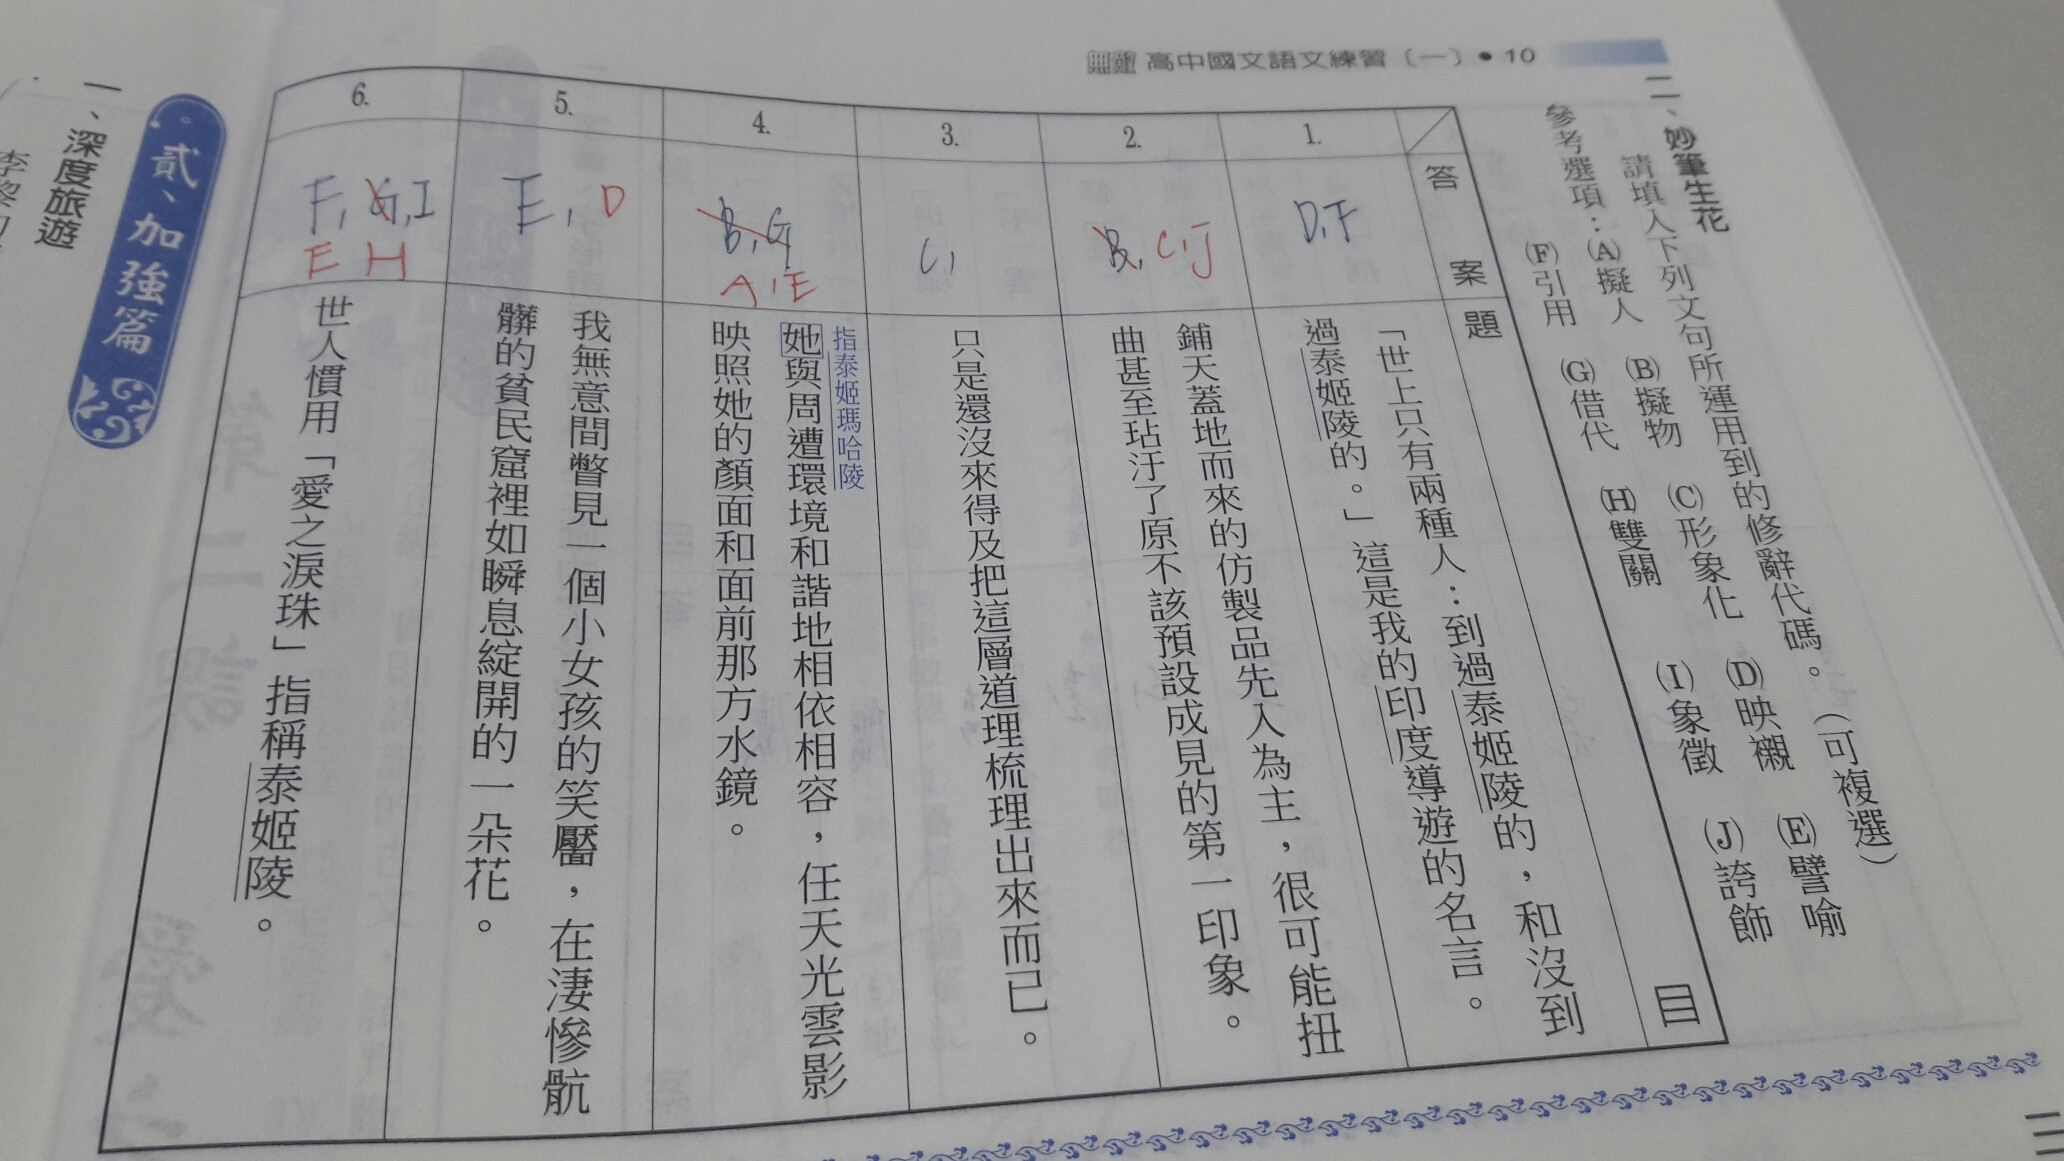 無敵 高中國文語文練習(一)•10
二、妙筆生花
請填入下列文句所運用到的修辭代碼。(可複選)
參考選項:(A)擬人 (B)擬物 (C)形象化 (D)映襯 (E)譬喻
(F)引用 (G)借代 (H)雙關 (I)象徵 (J)誇飾
答案 題目
1. D,F
「世上只有兩種人:到過泰姬陵的,和沒到
過泰姬陵的。」這是我的印度導遊的名言。
2. B, C,J
鋪天蓋地而來的仿製品先入為主,很可能扭
曲甚至玷汙了原不該預設成見的第一印象。
3. C,
只是還沒來得及把這層道理梳理出來而已。
4. B,G
A,E
指泰姬瑪哈陵
她與周遭環境和諧地相依相容,任天光雲影
映照她的顏面和面前那方水鏡。
5. E, D
我無意間瞥見一個小女孩的笑靨,在淒慘骯
髒的貧民窟裡如瞬息綻開的一朵花。
6. F, G,I
E H
世人慣用「愛之淚珠」指稱泰姬陵。
貳、加強篇
一、深度旅遊
李黎